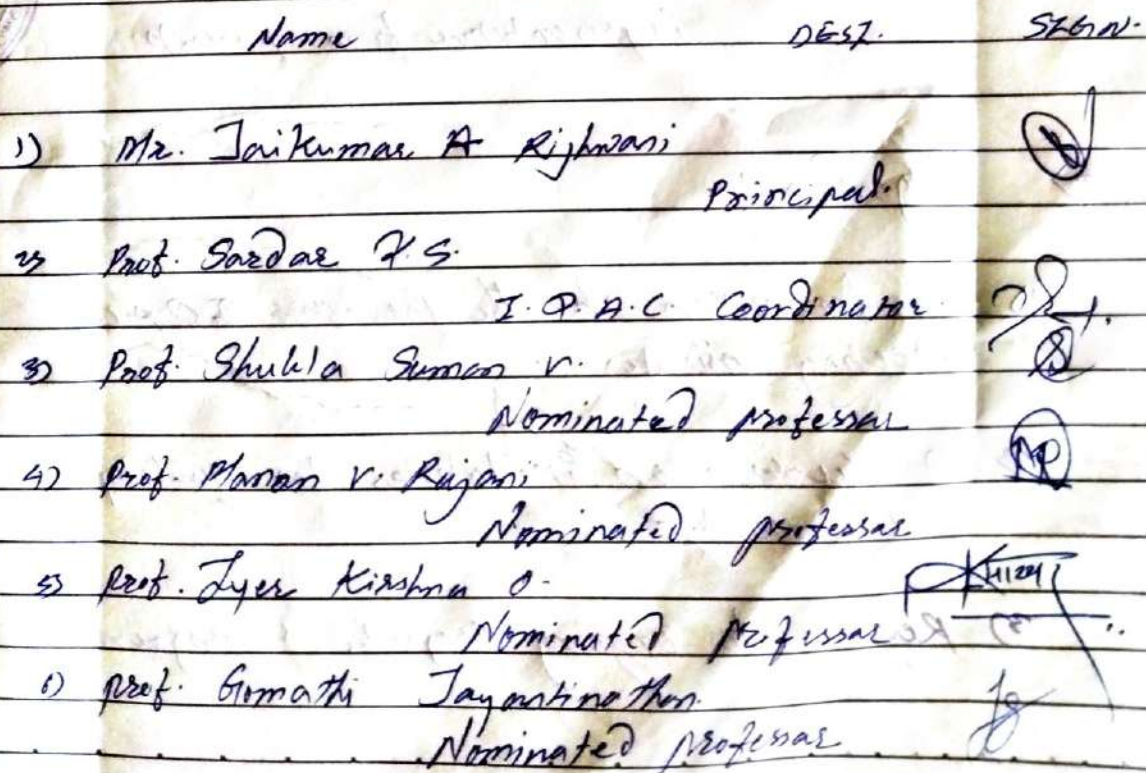 Name DESI. SIGN.
1) Mr. Jaikumar A Rijhwani
Principal.
2) Prof. Sardar F.S.
I.Q.A.C. Coordinator
3) Prof. Shukla Suman V.
Nominated professor
4) Prof. Manan V. Rajani
Nominated professor
5) Prof. Iyer Kirshna O.
Nominated Professor
6) prof. Gomathi Jayantinathan.
Nominated professor